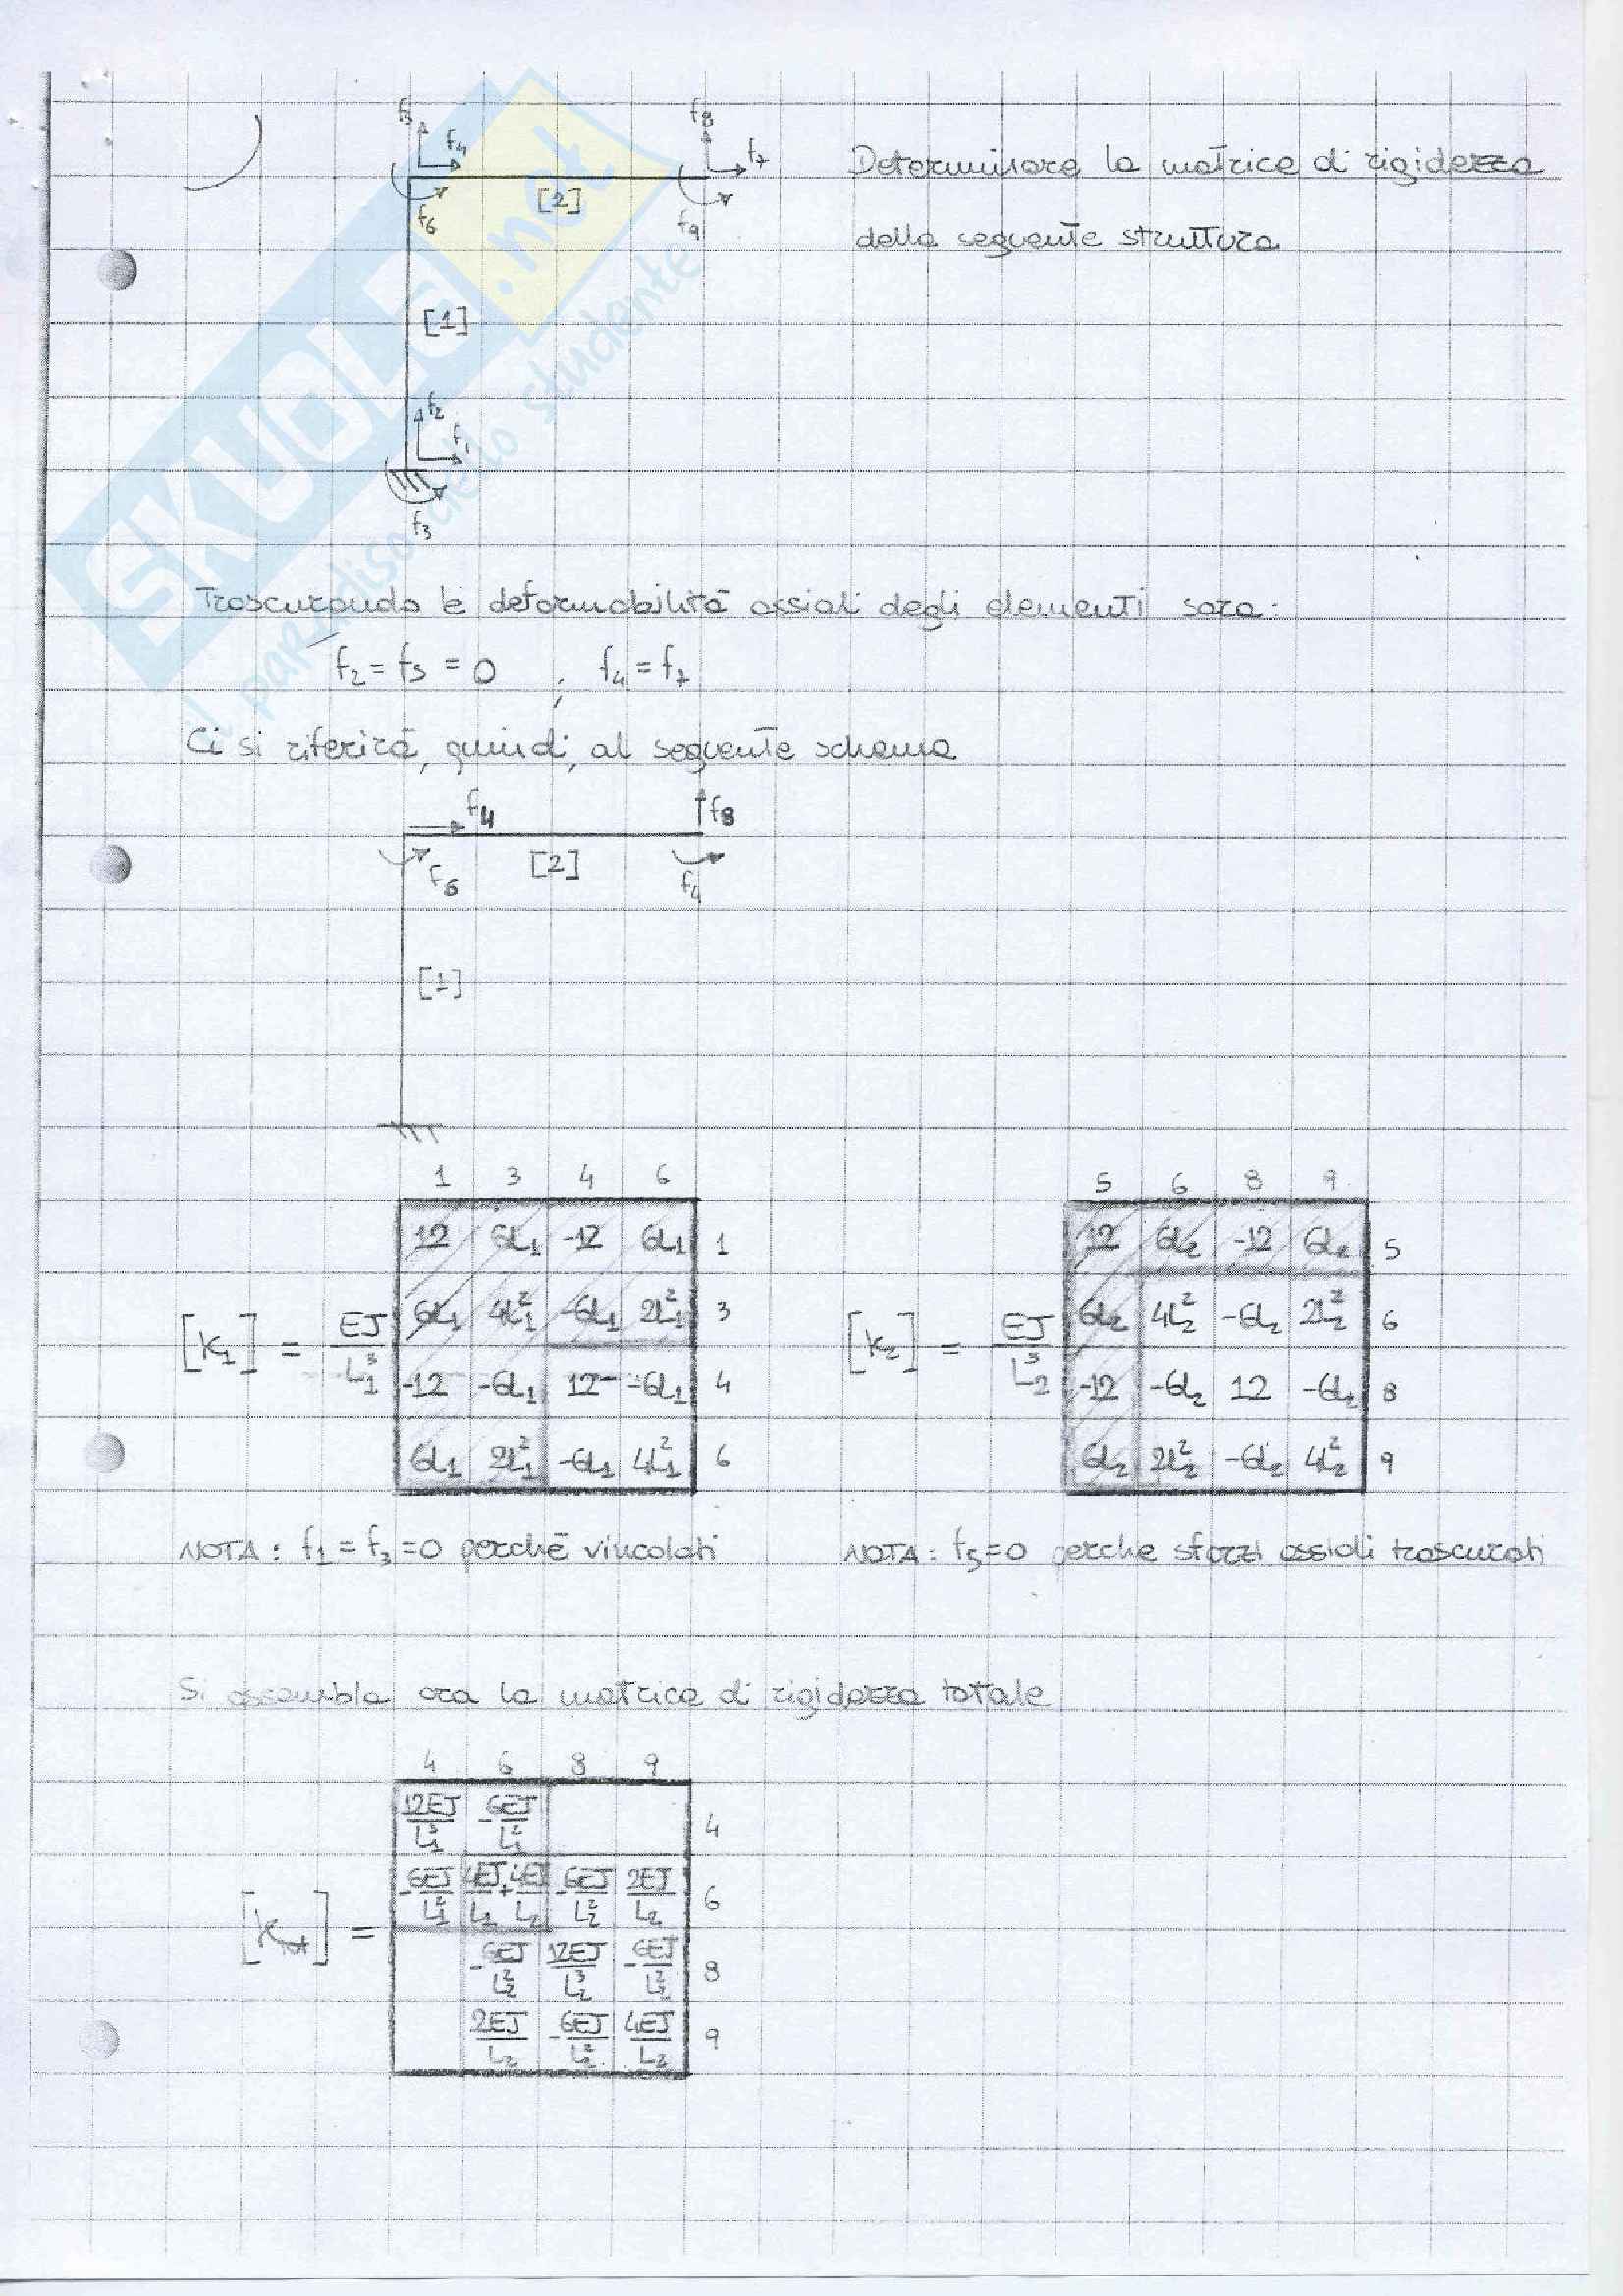 f5 f4 f8 f7
Determinare la matrice di rigidezza
[2]
f6 f9
della seguente struttura
[1]
f2
f1
f3
SKUOLA.net
il paradiso dello studente
Trascurando le deformabilità assiali degli elementi sarà:
f2 = f5 = 0 ; f4 = f7
Ci si riferirà, quindi, al seguente schema
f4 f8
f6 [2] f4
[1]
1 3 4 6
12 6L1 -12 6L1 1
6L1 4L1² -6L1 2L1² 3
[K1] = EJ/L1³
-12 -6L1 12 -6L1 4
6L1 2L1² -6L1 4L1² 6
5 6 8 9
12 6L2 -12 6L2 5
6L2 4L2² -6L2 2L2² 6
[K2] = EJ/L2³
-12 -6L2 12 -6L2 8
6L2 2L2² -6L2 4L2² 9
NOTA: f1 = f3 = 0 perchè vincolati
NOTA: f5=0 perche sforzi assiali trascurati
Si assembla ora la matrice di rigidezza totale
4 6 8 9
12EJ/L1³ -6EJ/L1² 4
-6EJ/L1² 4EJ/L1+4EJ/L2 -6EJ/L2² 2EJ/L2 6
[Ktot] =
-6EJ/L2² 12EJ/L2³ -6EJ/L2² 8
2EJ/L2 -6EJ/L2² 4EJ/L2 9